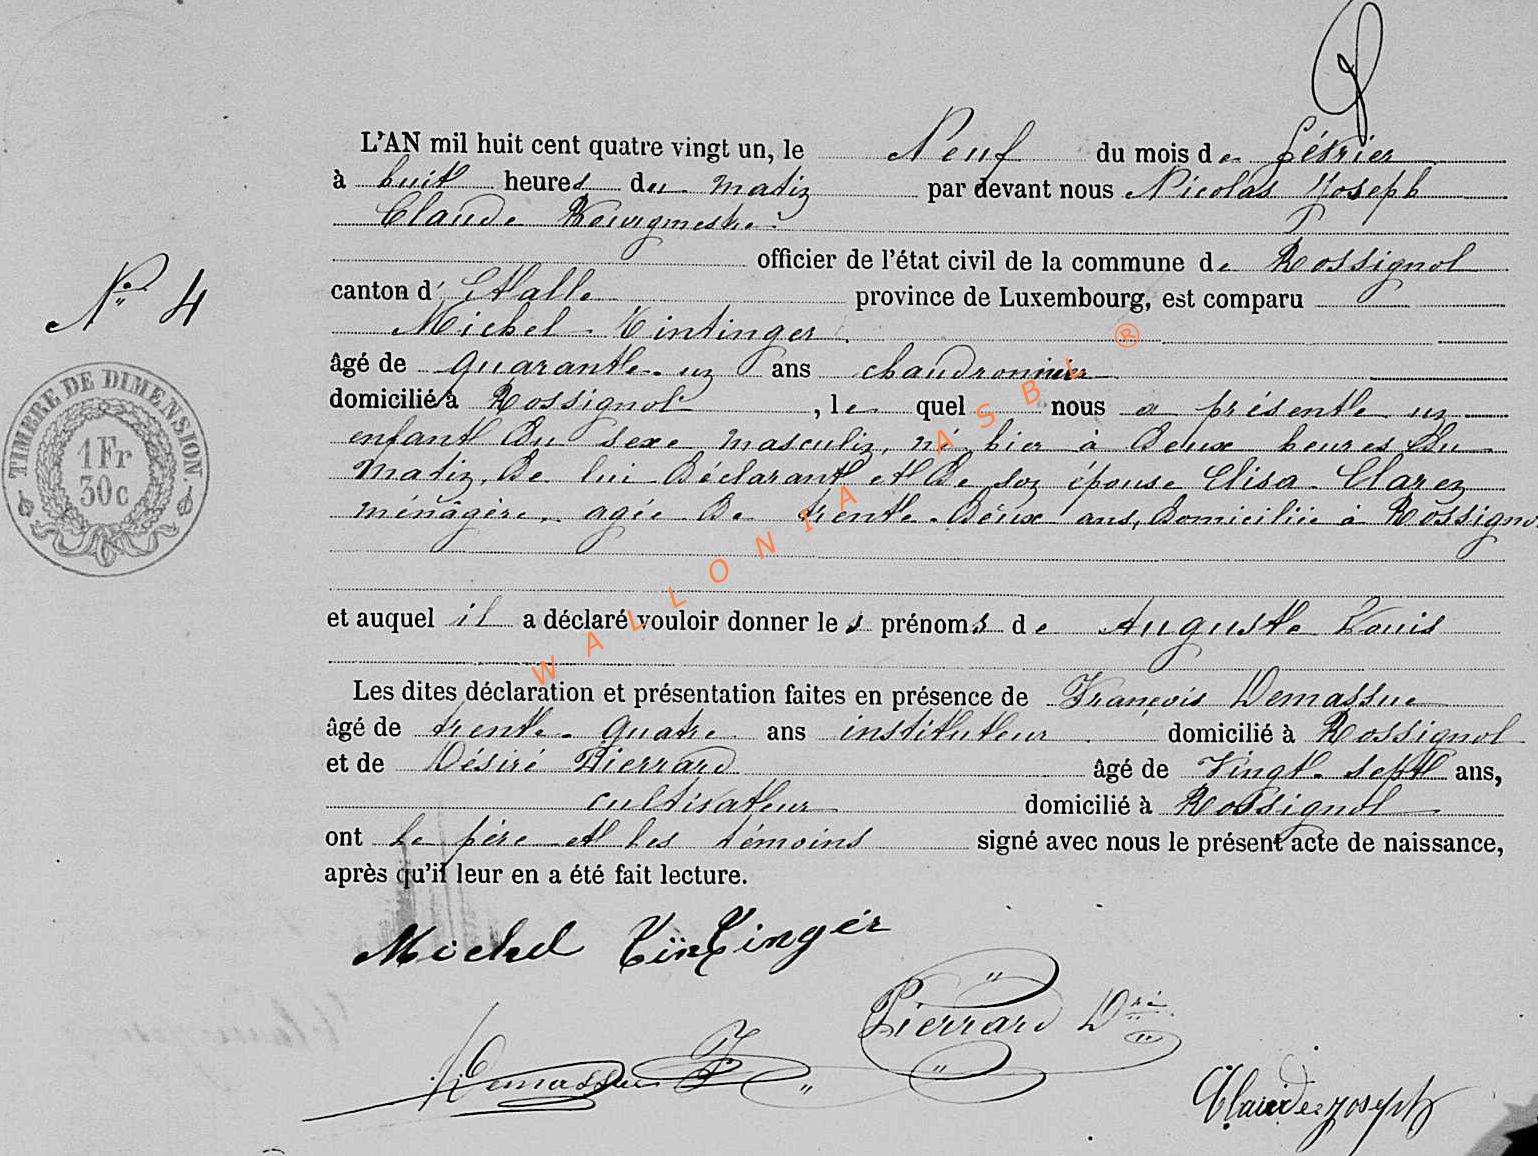 L'AN mil huit cent quatre vingt un, le Neuf du mois de février
à huit heures du matin par devant nous Nicolas Joseph
Claude Bourgmestre
officier de l'état civil de la commune de Rossignol
N° 4
canton d'Etalle province de Luxembourg, est comparu
Michel Tintinger
âgé de quarante-un ans chaudronnier
domicilié à Rossignol, lequel nous a présenté un
enfant du sexe masculin, né hier à deux heures du
matin, de lui déclarant et de son épouse Elisa Claren
ménagère, agée de trente-deux ans, domiciliée à Rossignol
TIMBRE DE DIMENSION.
1Fr
30c
et auquel il a déclaré vouloir donner les prénoms de Auguste Louis
Les dites déclaration et présentation faites en présence de François Demassue
âgé de trente-quatre ans instituteur domicilié à Rossignol
et de Désiré Pierrard âgé de vingt-sept ans,
cultivateur domicilié à Rossignol
ont le père et les témoins signé avec nous le présent acte de naissance,
après qu'il leur en a été fait lecture.
Michel Tintinger
Pierrard Dré
Demassue F
Claude Joseph
WALLONIA ASBL ®